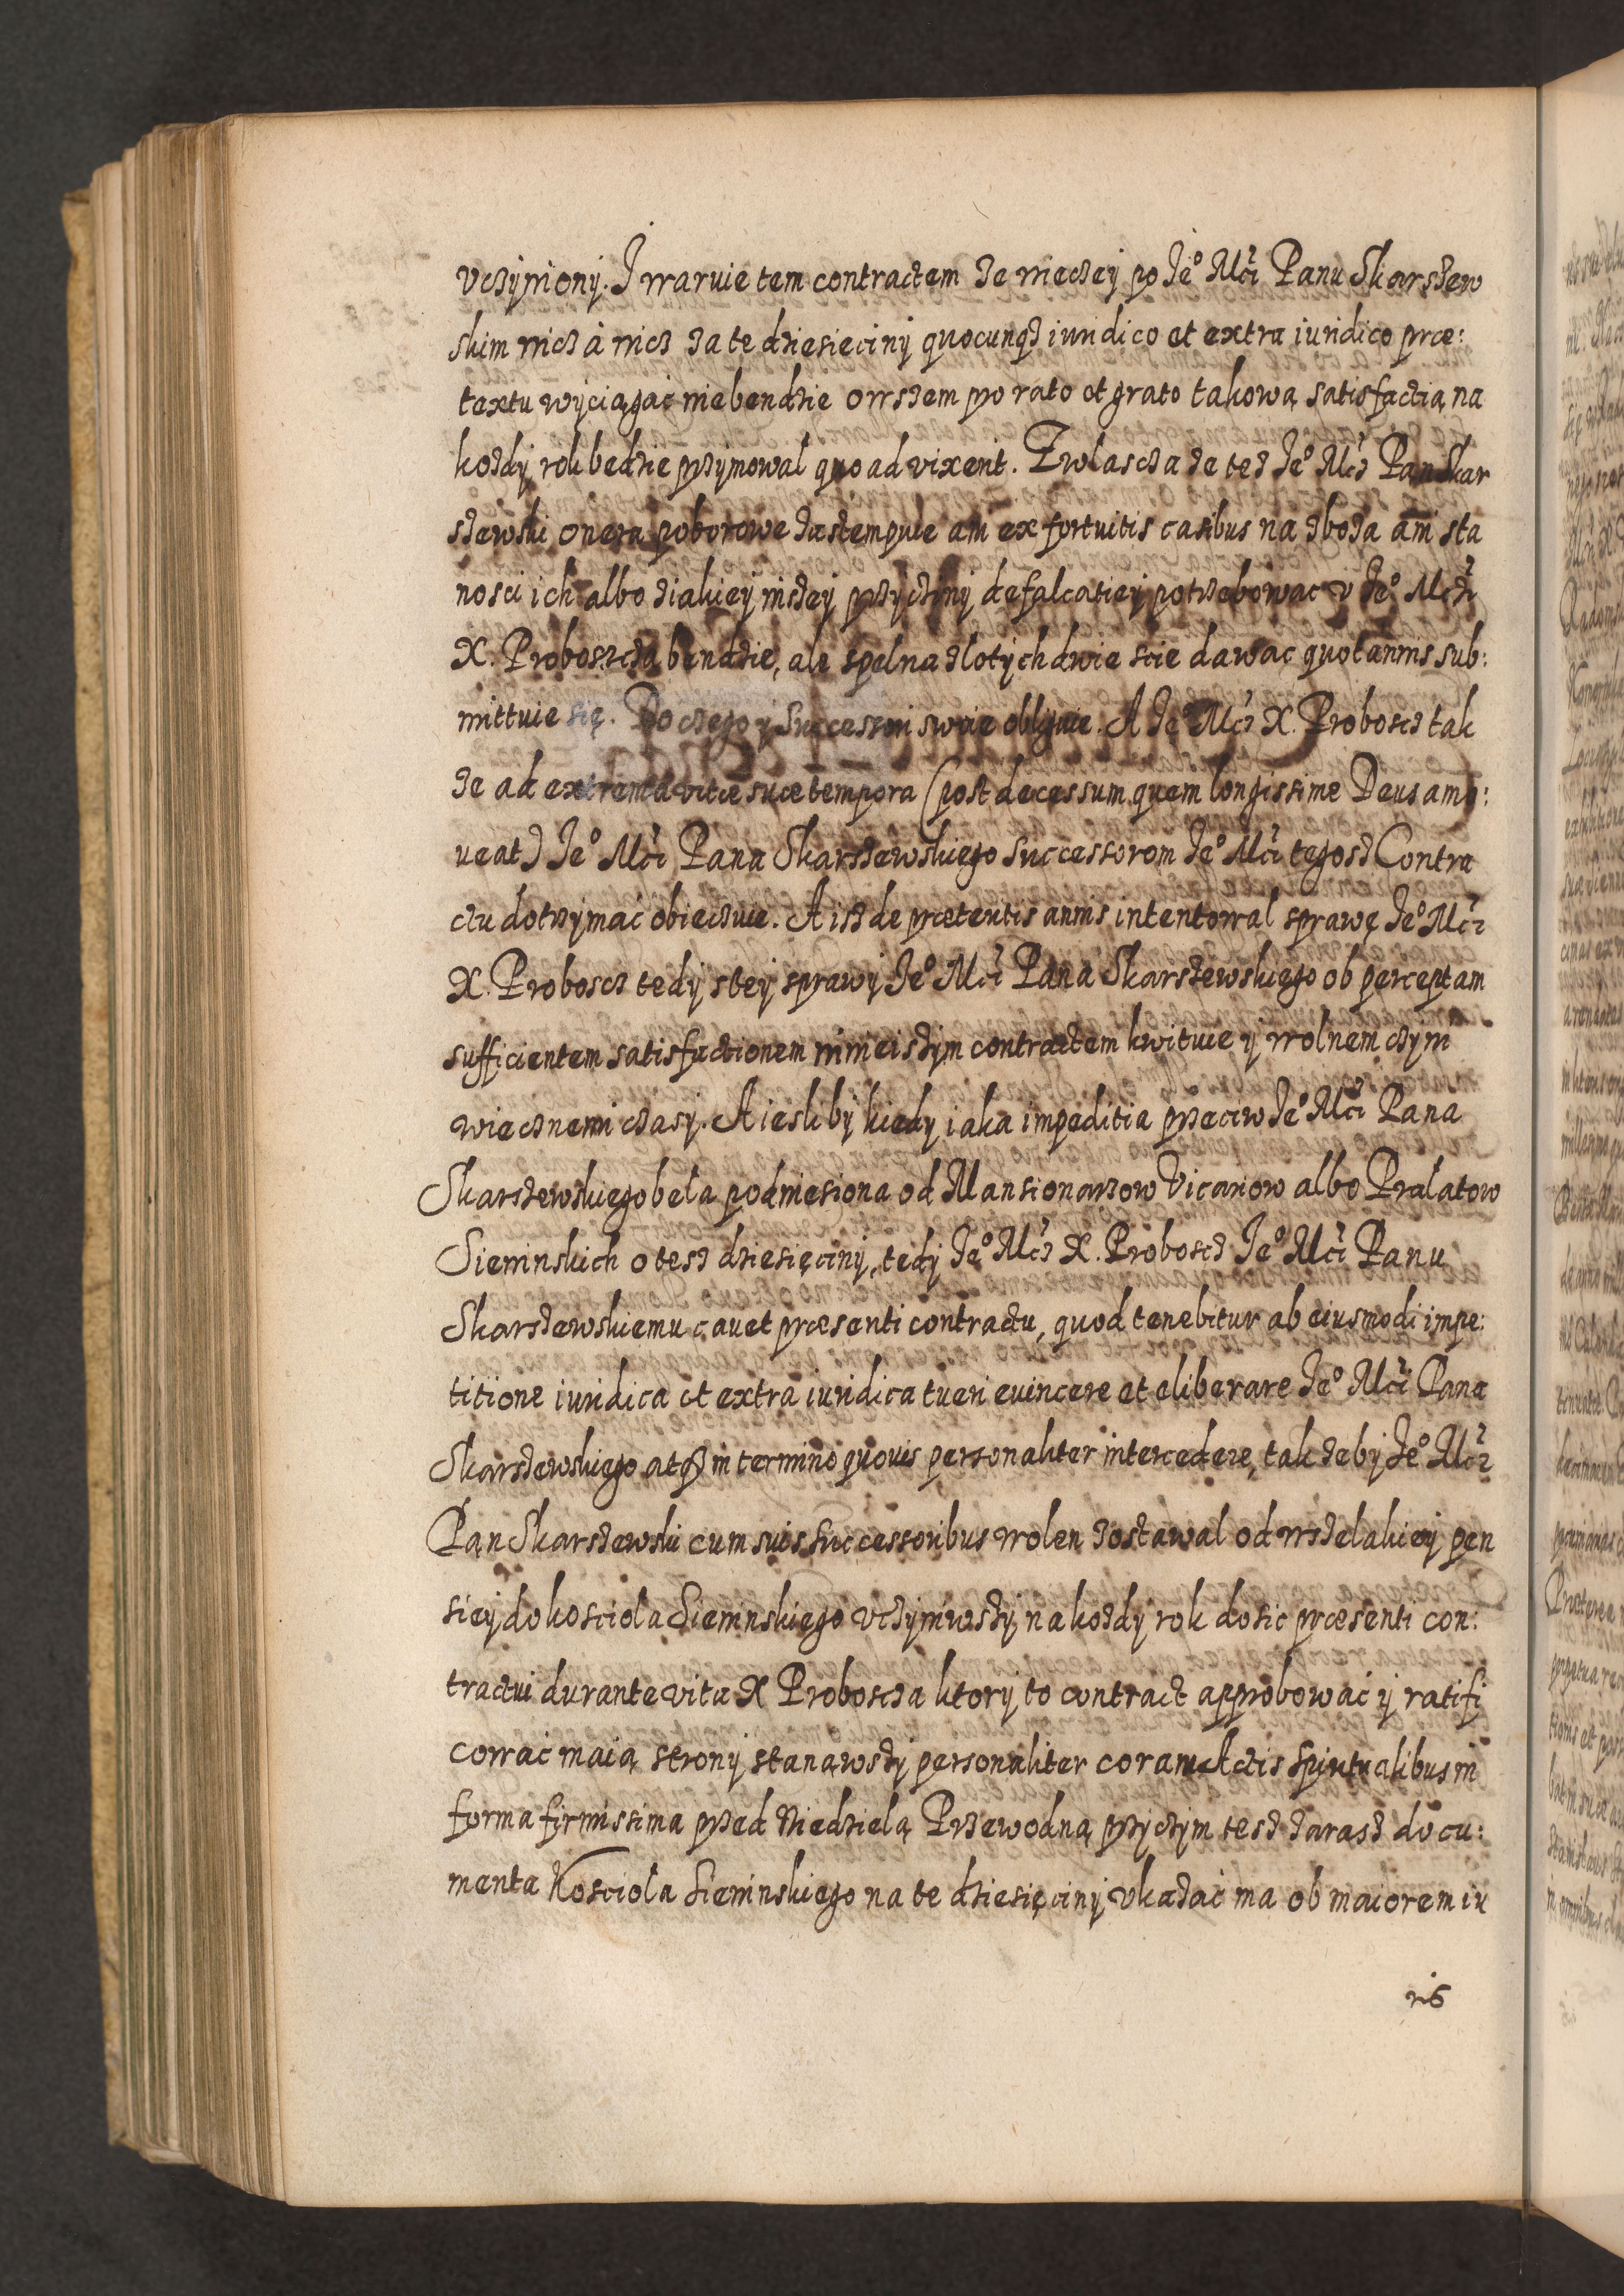 vczÿnionÿ. J waruie tem contractem ze wieczeÿ po Je° Mći Panu Skarszew
skim nicz à nicz za te dziesiecinÿ quocunqз iuridico et extra iuridico præ:
textu wÿciągać niebendzie owszem pro rato et grato takową satisfactią na
kozdÿ rok bedzie przÿmowal quo ad vixerit. Zwlascza ze tez Je° Mcz Pan Skar
szewski onera poborowe zastempuie ani ex fortuitis casibus na zboza ani sta
nosci ich albo ziakieÿ inszeÿ przÿczÿnÿ defalcatieÿ potrzebowac v Je° Mczi
X. Proboszcza bendzie, ale spelna zlotÿch dwie scie dawac quotannis sub:
mittuie się. Do czego ÿ Successori swoie obliguie. A Je° Mcz X. Proboscz tak
ze ad extrema vitæ suæ tempora (post decessum quem longissime Deus amo:
ueat) Je° Mći Pana Skarszewskiego Successorom Je° Mći tegosz Contra
ctu dotrzÿmać obiecuie. A isz de prætentis annis intentowal sprawę Je° Mcz
X. Proboscz tedÿ steÿ sprawÿ Je° Mći Pana Skarszewskiego ob perceptam
sufficientem satisfactionem ninieiszÿm contractem kwituie ÿ wolnem czÿni
wiecznemi czasÿ. A iesli bÿ kiedy iaka impeditia przeciw Je° Mći Pana
Skarszewskiego bela podniesiona od Mansionarzow Vicariow albo Prælatow
Siewinskich o tesz dziesięcinÿ, tedÿ Je° Mcz X. Proboscz Je° Mći Panu
Skarszewskiemu cauet præsenti contractu, quod tenebitur ab eiusmodi impe:
titione iuridica et extra iuridica tueri euincere et eliberare Je° Mći Pana
Skarszewskiego atqз in termino quouis personaliter intercedere, tak zebÿ Je° Mcz
Pan Skarszewski cum suis Successoribus wolen zostawal od wszelakieÿ pen
sieÿ do kosciola Siewinskiego vczÿniwszÿ na kozdÿ rok dosic præsenti con:
tractui durante vita X Proboscza ktorÿ to contract approbować ÿ ratifi
cowac maią stronÿ stanąwszÿ personaliter coram Actis Spiritualibus in
forma firmissima przed Niedzielą Przewodną przÿczÿm tesz zarasz docu:
menta Kosciola Siewinskiego na te dziesięcinÿ vkazać ma ob maiorem iu
ris